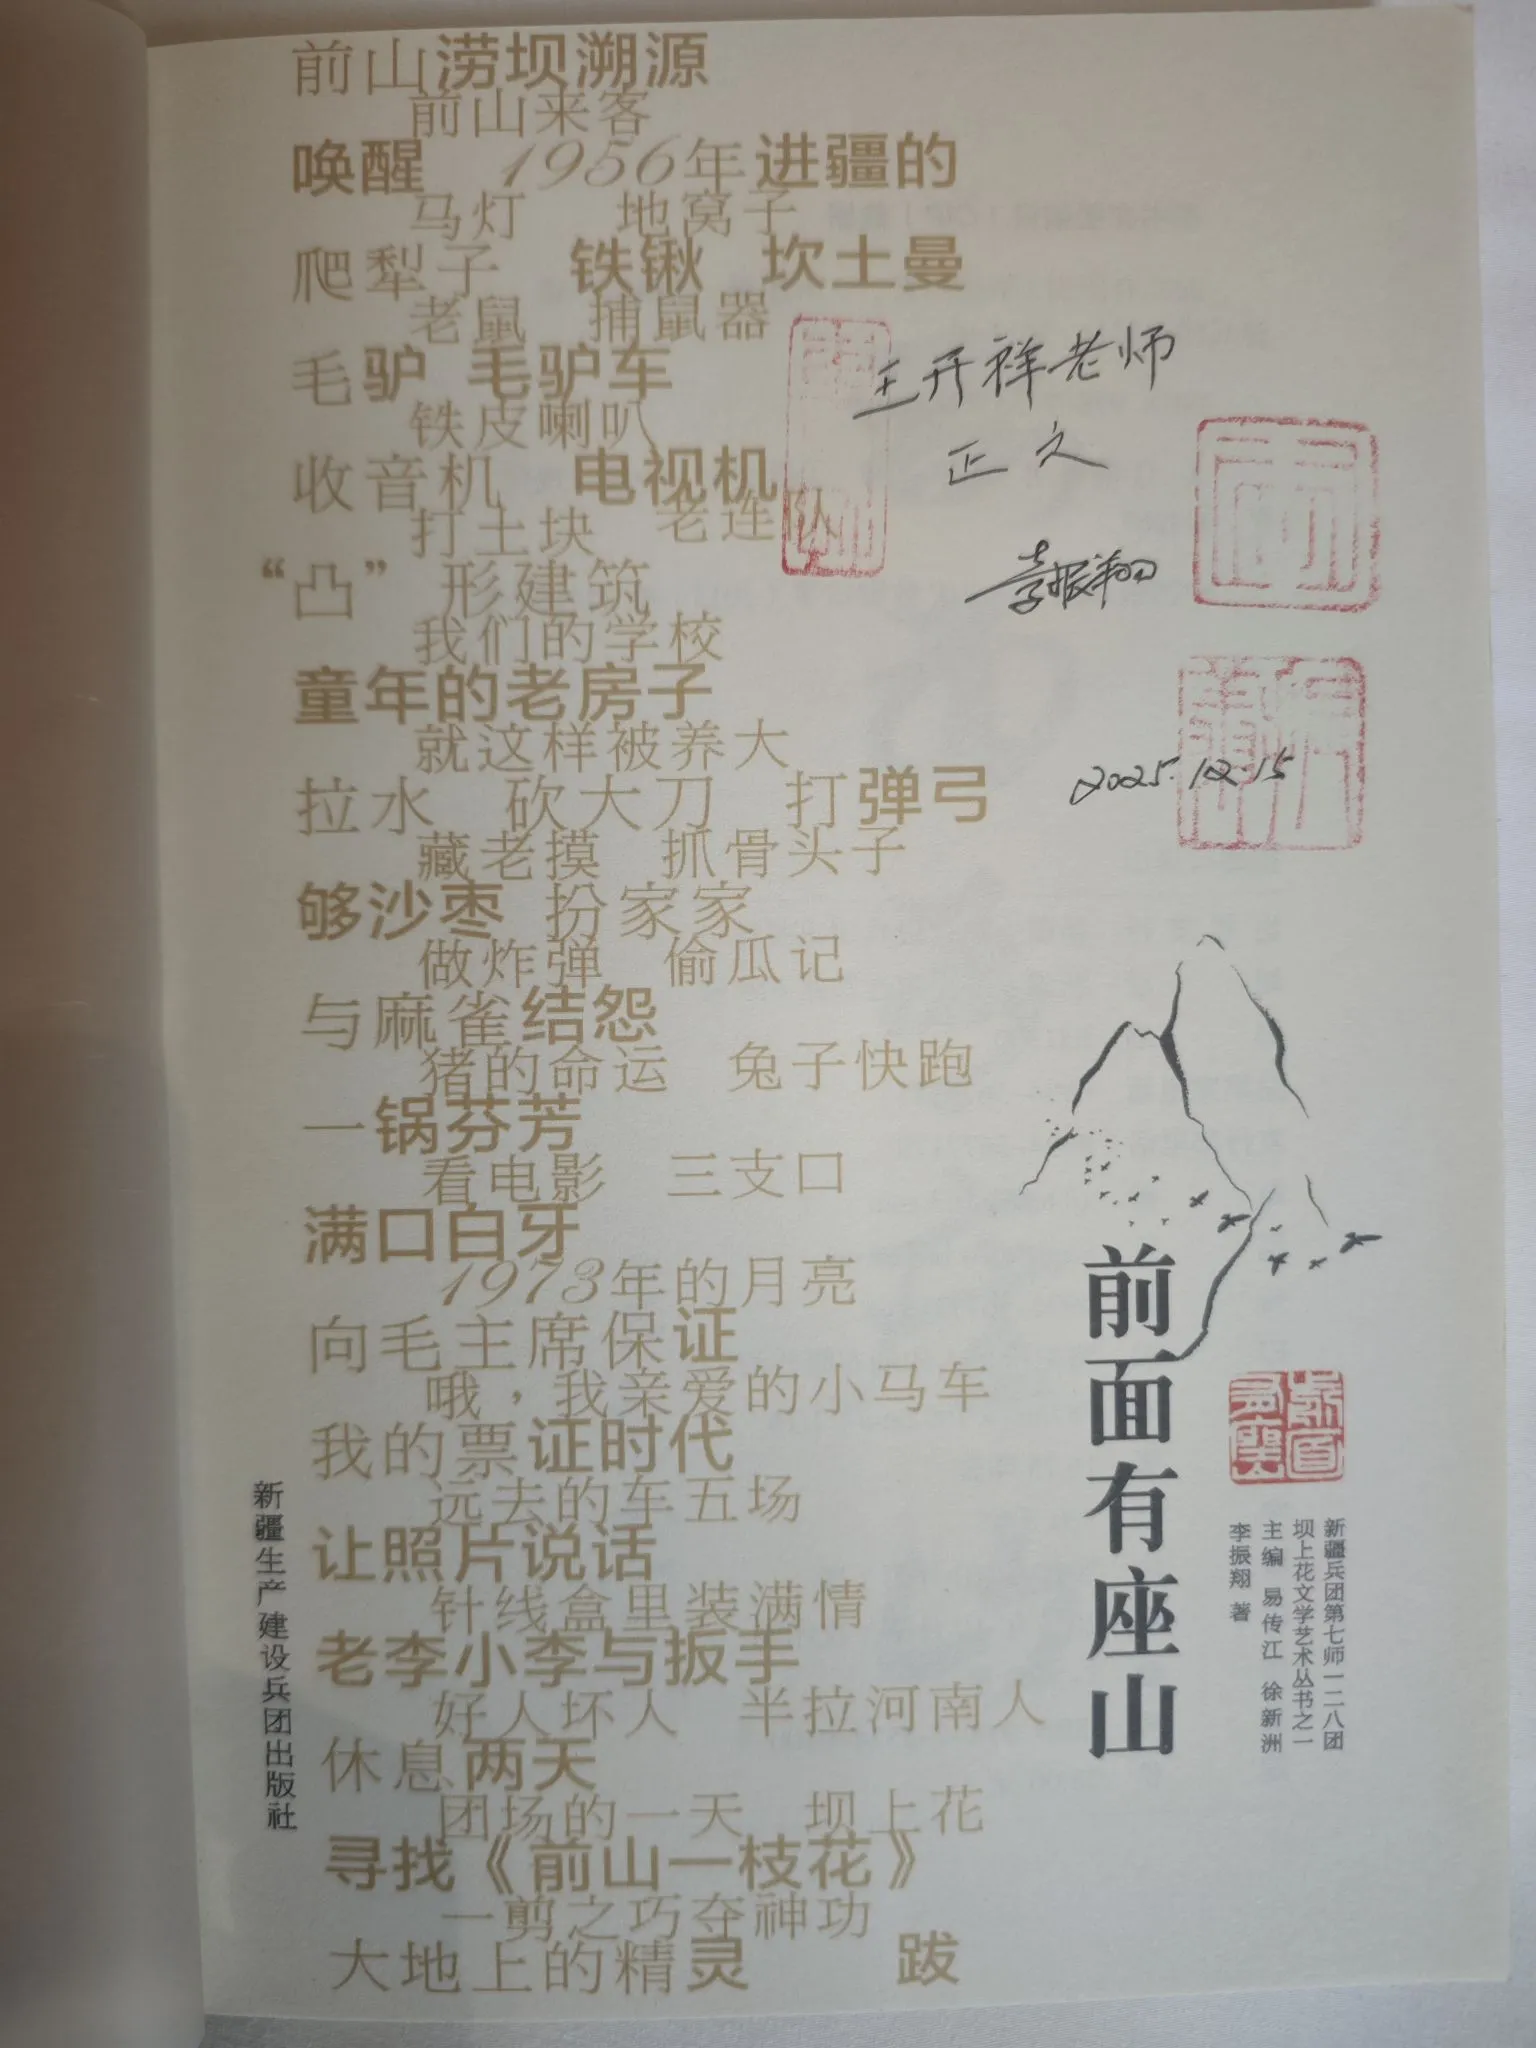 前山涝坝溯源
前山来客
唤醒 1956年进疆的
马灯 地窝子
爬犁子 铁锹 坎土曼
老鼠 捕鼠器
毛驴 毛驴车
铁皮喇叭
收音机 电视机
打土块 老连队
“凸”形建筑
我们的学校
童年的老房子
就这样被养大
拉水 砍大刀 打弹弓
藏老摸 抓骨头子
够沙枣 扮家家
做炸弹 偷瓜记
与麻雀结怨
猪的命运 兔子快跑
一锅芬芳
看电影 三支口
满口白牙
1973年的月亮
向毛主席保证
哦，我亲爱的小马车
我的票证时代
远去的车五场
让照片说话
针线盒里装满情
老李小李与扳手
好人坏人 半拉河南人
休息两天
团场的一天 坝上花
寻找《前山一枝花》
一剪之巧夺神功
大地上的精灵 跋
王开祥老师
正文
李振翔
2025.12.15
前面有座山
前面有座山
新疆兵团第七师一二八团
坝上花文学艺术丛书之一
主编 易传江 徐新洲
李振翔 著
新疆生产建设兵团出版社